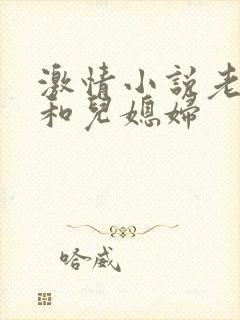 激情小說老
和兒媳婦
哈威